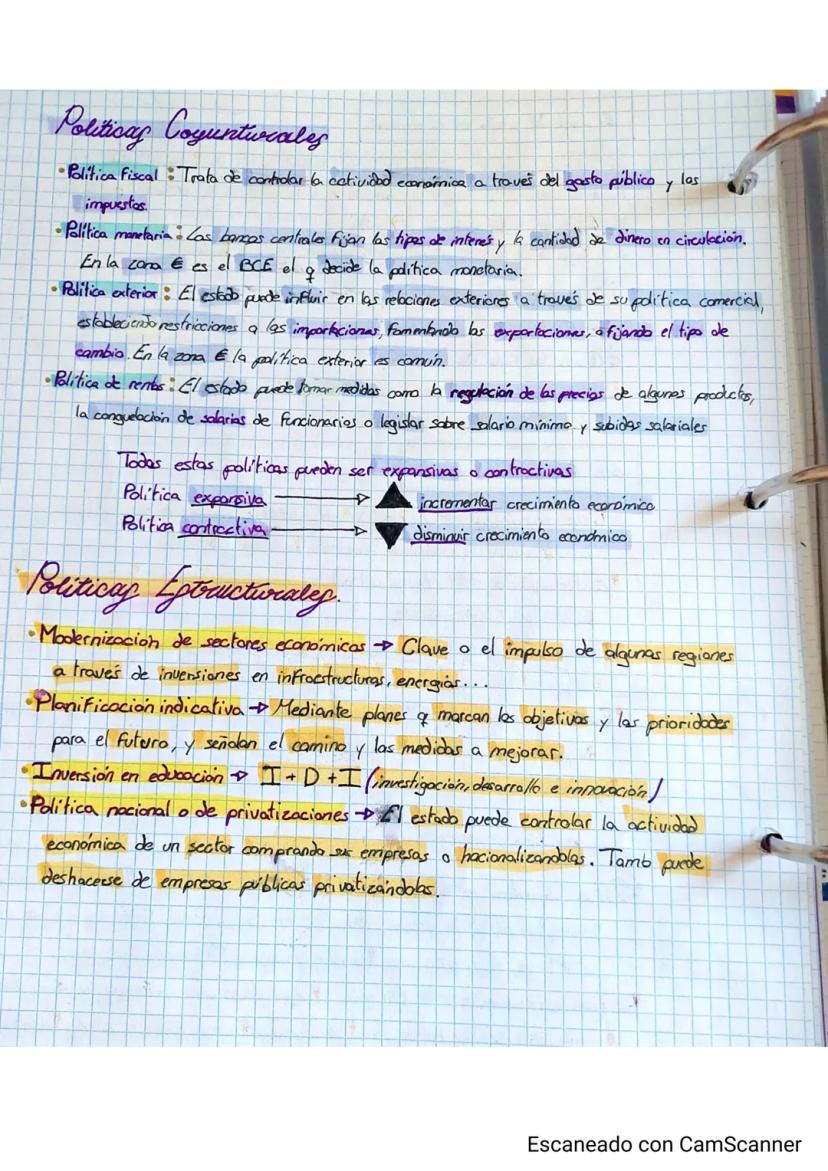 Políticas Coyunturales
• Política Fiscal : Trata de controlar la actividad económica a través del gasto público y los
impuestos.
• Política monetaria : Los bancos centrales fijan los tipos de interés y la cantidad de dinero en circulación.
En la zona € es el BCE el q decide la política monetaria.
• Política exterior : El estado puede influir en las relaciones exteriores a través de su política comercial,
estableciendo restricciones a las importaciones, fomentando las exportaciones, o fijando el tipo de
cambio. En la zona € la política exterior es común.
• Política de rentas : El estado puede tomar medidas como la regulación de los precios de algunos productos,
la conguelación de salarios de funcionarios o legislar sobre salario mínimo y subidas salariales
Todas estas políticas pueden ser expansivas o contractivas
Política expansiva → ▲ incrementar crecimiento económico
Política contractiva → ▼ disminuir crecimiento económico
Políticas Estructurales.
• Modernización de sectores económicos → Clave o el impulso de algunas regiones
a través de inversiones en infraestructuras, energías...
• Planificación indicativa → Mediante planes q marcan los objetivos y las prioridades
para el futuro, y señalan el camino y las medidas a mejorar.
• Inversión en educación → I + D + I (investigación, desarrollo e innovación)
• Política nacional o de privatizaciones → El estado puede controlar la actividad
económica de un sector comprando sus empresas o nacionalizandolas. Tamb puede
deshacerse de empresas públicas privatizándolas.
Escaneado con CamScanner